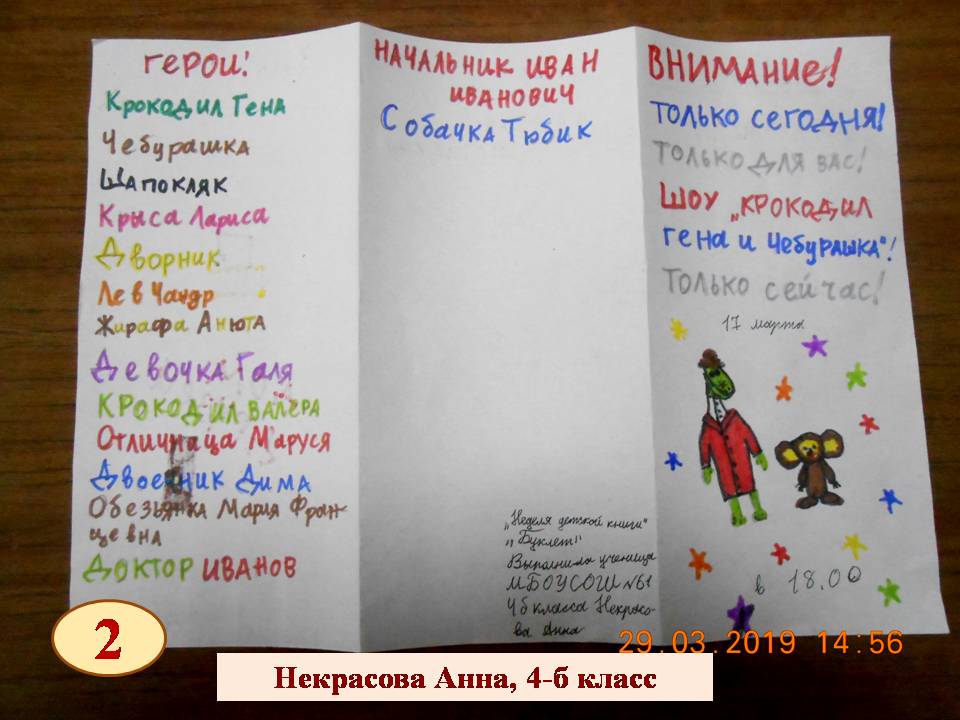 Герои!
Крокодил Гена
Чебурашка
Шапокляк
Крыса Лариса
Дворник
Лев Чандр
Жирафа Анюта
Девочка Галя
Крокодил Валера
Отличница Маруся
Двоечник Дима
Обезьянка Мария Фран-
цевна
Доктор Иванов
НАЧАЛЬНИК ИВАН
ИВАНОВИЧ
Собачка Тюбик
„Неделя детской книги"
„Буклет"
Выполнила ученица
МБОУСОШ №61
4б класса Некрасо-
ва Анна
Внимание!
Только сегодня!
Только для вас!
Шоу „Крокодил
Гена и Чебурашка"!
Только сейчас!
17 марта
в 18.00
29.03.2019 14:56
2
Некрасова Анна, 4-б класс